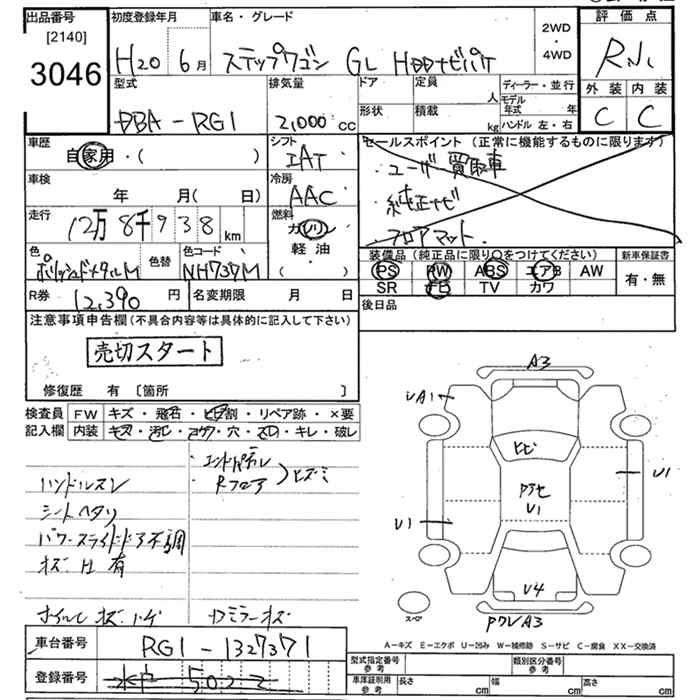 出品番号
[2140]
3046
初度登録年月
H20 6月
車名・グレード
ステップワゴン GL HDDナビパケ
2WD
・
4WD
評価点
外装 内装
C C
型式
DBA-RG1
排気量
2,000 cc
ドア
形状
定員
人
積載
kg
ディーラー・並行
モデル
年式 年
ハンドル 左・右
車歴
自家用・( )
シフト
IAT
セールスポイント (正常に機能するものに限ります)
・ユーザー買取車
・純正ナビ
・フロアマット
車検
年 月( 日)
冷房
AAC
走行
12万8千938 km
燃料
ガソリン
軽油
( )
色
ポリッシュドメタルM
色替
色コード
NH737M
装備品 (純正品に限り○をつけてください)
PS PW ABS エアB AW
SR TV カワ
新車保証書
有・無
R券
12,390 円
名変期限 月 日
後日品
注意事項申告欄 (不具合内容等は具体的に記入して下さい)
売切スタート
修復歴 有 〔箇所 〕
検査員
記入欄
FW キズ・飛石・ヒビ割・リペア跡・×要
内装 キズ・汚レ・コゲ・穴・スレ・キレ・破レ
ハンドルスレ
シートヘタリ
パワースライドドア不調
キズ 凹 有
ホイルキズ・ハゲ
・エンドパネル
・Rフロア
ヒズミ
ミラーキズ
A3
UA1
ヒビ
U1
U1
U1
U4
スペア
A3
A−キズ E−エクボ U−凹み W−補修跡 S−サビ C−腐食 XX−交換済
車台番号
RG1-1327371
登録番号
型式指定番号
参考
類別区分番号
参考
車庫証明用
参考
長さ cm
幅 cm
高さ cm